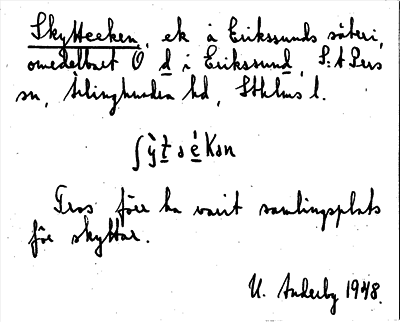 Skytteeken, ek å Erikssunds säteri,
omedelbart O d i Erikssund, S:t Pers
sn, Ärlinghundra hd, Sthlms l.
ʃỳt̲ ə é̲Kən
Tros förr ha varit samlingsplats
för skyttar.
U. Anderby 1948.